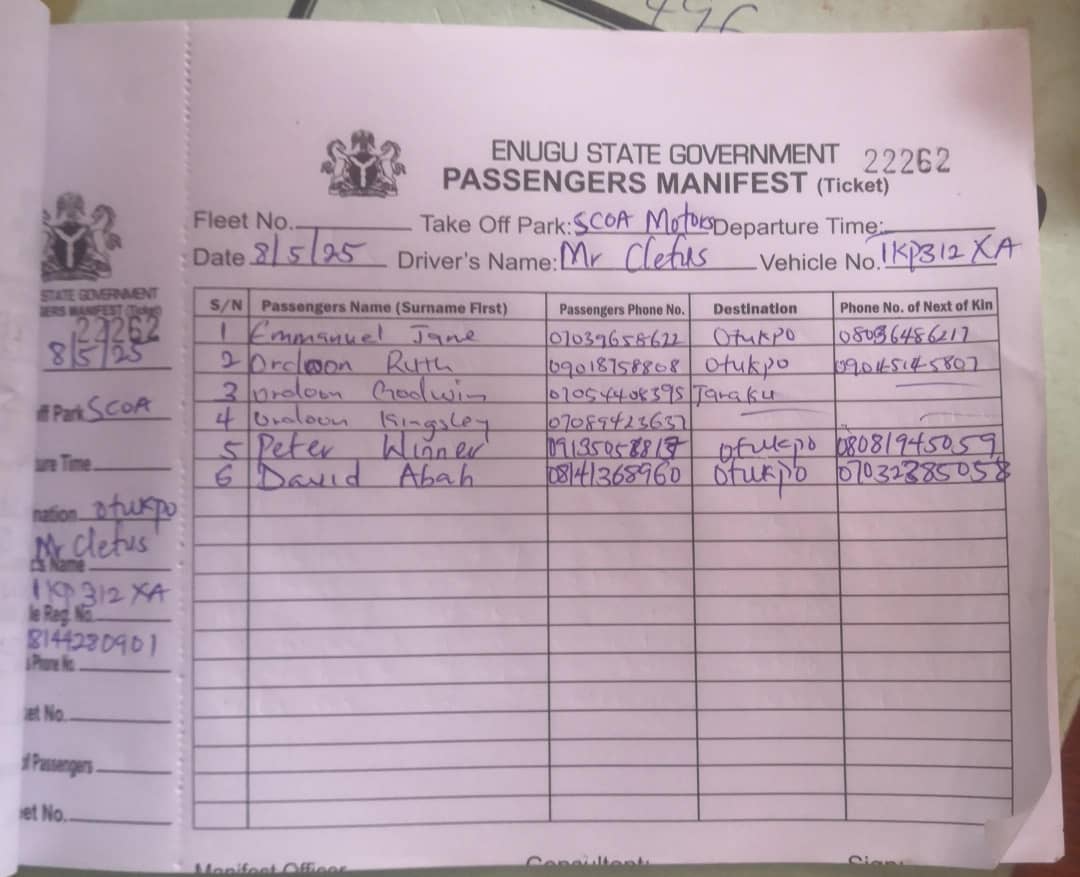 ENUGU STATE GOVERNMENT 22262
PASSENGERS MANIFEST (Ticket)
Fleet No. Take Off Park: SCOA Motors Departure Time:
Date 8/5/25 Driver's Name: Mr Cletus Vehicle No. 1KP312 XA
S/N Passengers Name (Surname First) Passengers Phone No. Destination Phone No. of Next of Kin
1 Emmanuel Jane 07039658622 Otukpo 08036486217
2 Ordoon Ruth 09018758808 Otukpo 09045145807
3 Ordoon Goodwin 07054408395 Taraku
4 Ordoon Kingsley 07089423637
5 Peter Winner Otukpo 08081945059
6 David Abah 08141368960 Otukpo 07032385058
Manifest Officer Consultant: Sign:
STATE GOVERNMENT
22262
8/5/25
Park SCOA
Time
Otukpo
Mr Cletus
Name
1KP 312 XA
le Reg. No.
8144280901
Phone No
et No.
f Passengers
et No.